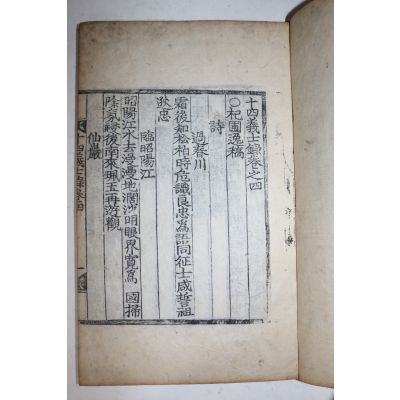 十四義士錄卷之四
○杞圃逸稿
詩
過春川
霜後知松柏時危識艮忠爲語同征士咸誓祖
狄忠
臨昭陽江
昭陽江水去漫漫地濶沙明眼界寬爲 國掃
除氛祲後南來珮玉再游觀
仙巖
十四義士錄卷四 一